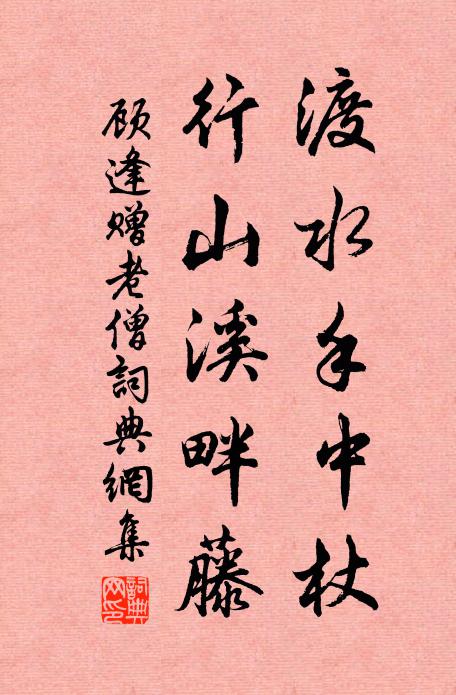 渡水手中杖
行山溪畔藤
顾逢赠老僧詞典網集
詞典网印